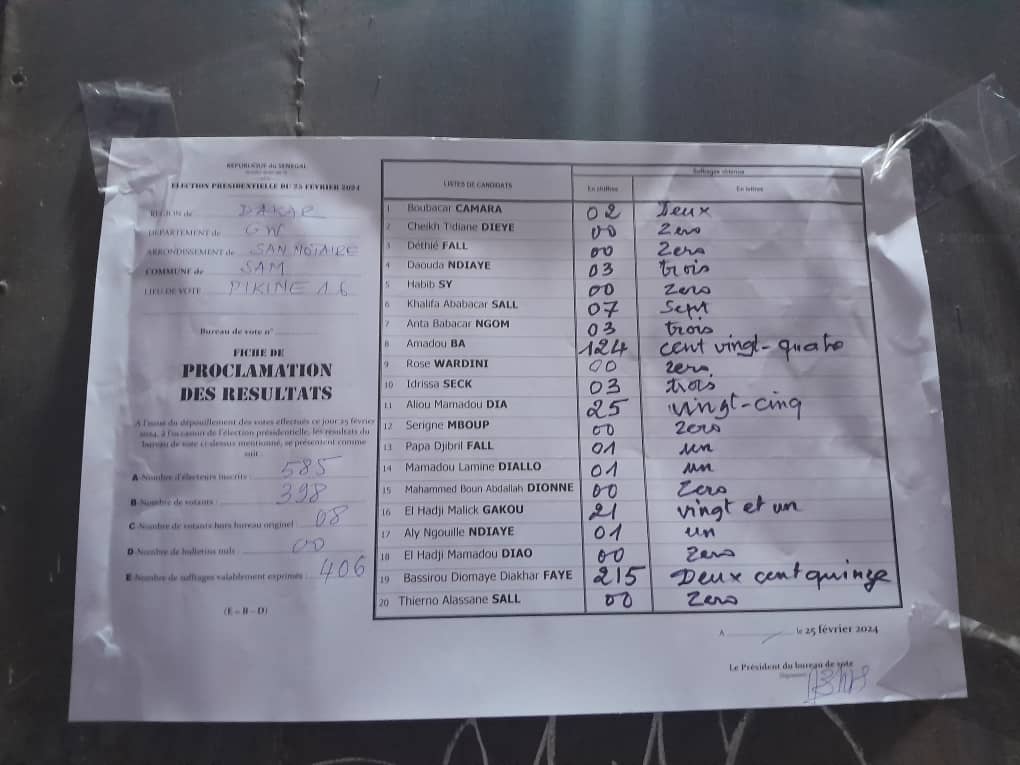 REPUBLIQUE du SENEGAL
ELECTION PRESIDENTIELLE DU 25 FEVRIER 2024
REGION de DAKAR
DEPARTEMENT de GW
ARRONDISSEMENT de SAN NOTAIRE
COMMUNE de SAM
LIEU DE VOTE PIKINE 16
Bureau de vote n°
FICHE DE
PROCLAMATION
DES RESULTATS
A l'issue du dépouillement des votes effectués ce jour 25 février
2024, à l'occasion de l'élection présidentielle, les résultats du
bureau de vote ci-dessus mentionné, se présentent comme
suit :
A-Nombre d'électeurs inscrits : 585
B-Nombre de votants : 398
C-Nombre de votants hors bureau originel : 08
D-Nombre de bulletins nuls : 00
E-Nombre de suffrages valablement exprimés : 406
(E = B - D)
LISTES DE CANDIDATS
Suffrages obtenus
En chiffres En lettres
1 Boubacar CAMARA 02 Deux
2 Cheikh Tidiane DIEYE 00 Zero
3 Déthié FALL 00 Zero
4 Daouda NDIAYE 03 trois
5 Habib SY 00 Zero
6 Khalifa Ababacar SALL 07 Sept
7 Anta Babacar NGOM 03 trois
8 Amadou BA 124 cent vingt-quatre
9 Rose WARDINI 00 zero
10 Idrissa SECK 03 trois
11 Aliou Mamadou DIA 25 vingt-cinq
12 Serigne MBOUP 00 Zero
13 Papa Djibril FALL 01 un
14 Mamadou Lamine DIALLO 01 un
15 Mahammed Boun Abdallah DIONNE 00 Zero
16 El Hadji Malick GAKOU 21 vingt et un
17 Aly Ngouille NDIAYE 01 un
18 El Hadji Mamadou DIAO 00 Zero
19 Bassirou Diomaye Diakhar FAYE 215 Deux cent quinze
20 Thierno Alassane SALL 00 Zero
A le 25 février 2024
Le Président du bureau de vote